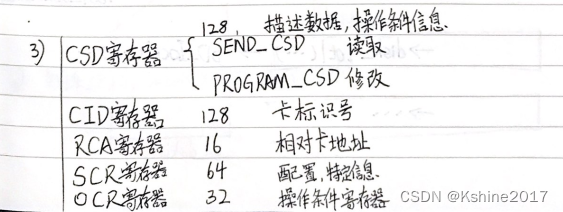 128, 描述数据,操作条件信息.
3) CSD寄存器 { SEND_CSD 读取
PROGRAM_CSD 修改
CID寄存器 128 卡标识号
RCA寄存器 16 相对卡地址
SCR寄存器 64 配置,特定信息.
OCR寄存器 32 操作条件寄存器
CSDN @Kshine2017